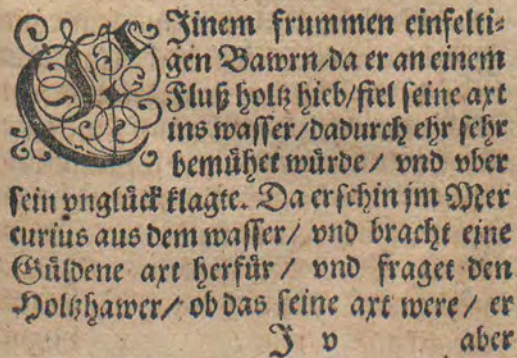 EJinem frummen einfelti⸗
gen Bawrn/da er an einem
Fluß holtz hieb/fiel seine axt
ins wasser/dadurch ehr sehr
bemühet würde / vnd vber
sein vnglück klagte. Da erschin jm Mer
curius aus dem wasser/ vnd bracht eine
Güldene axt herfür / vnd fraget den
Holtzhawer/ ob das seine axt were / er
J v aber